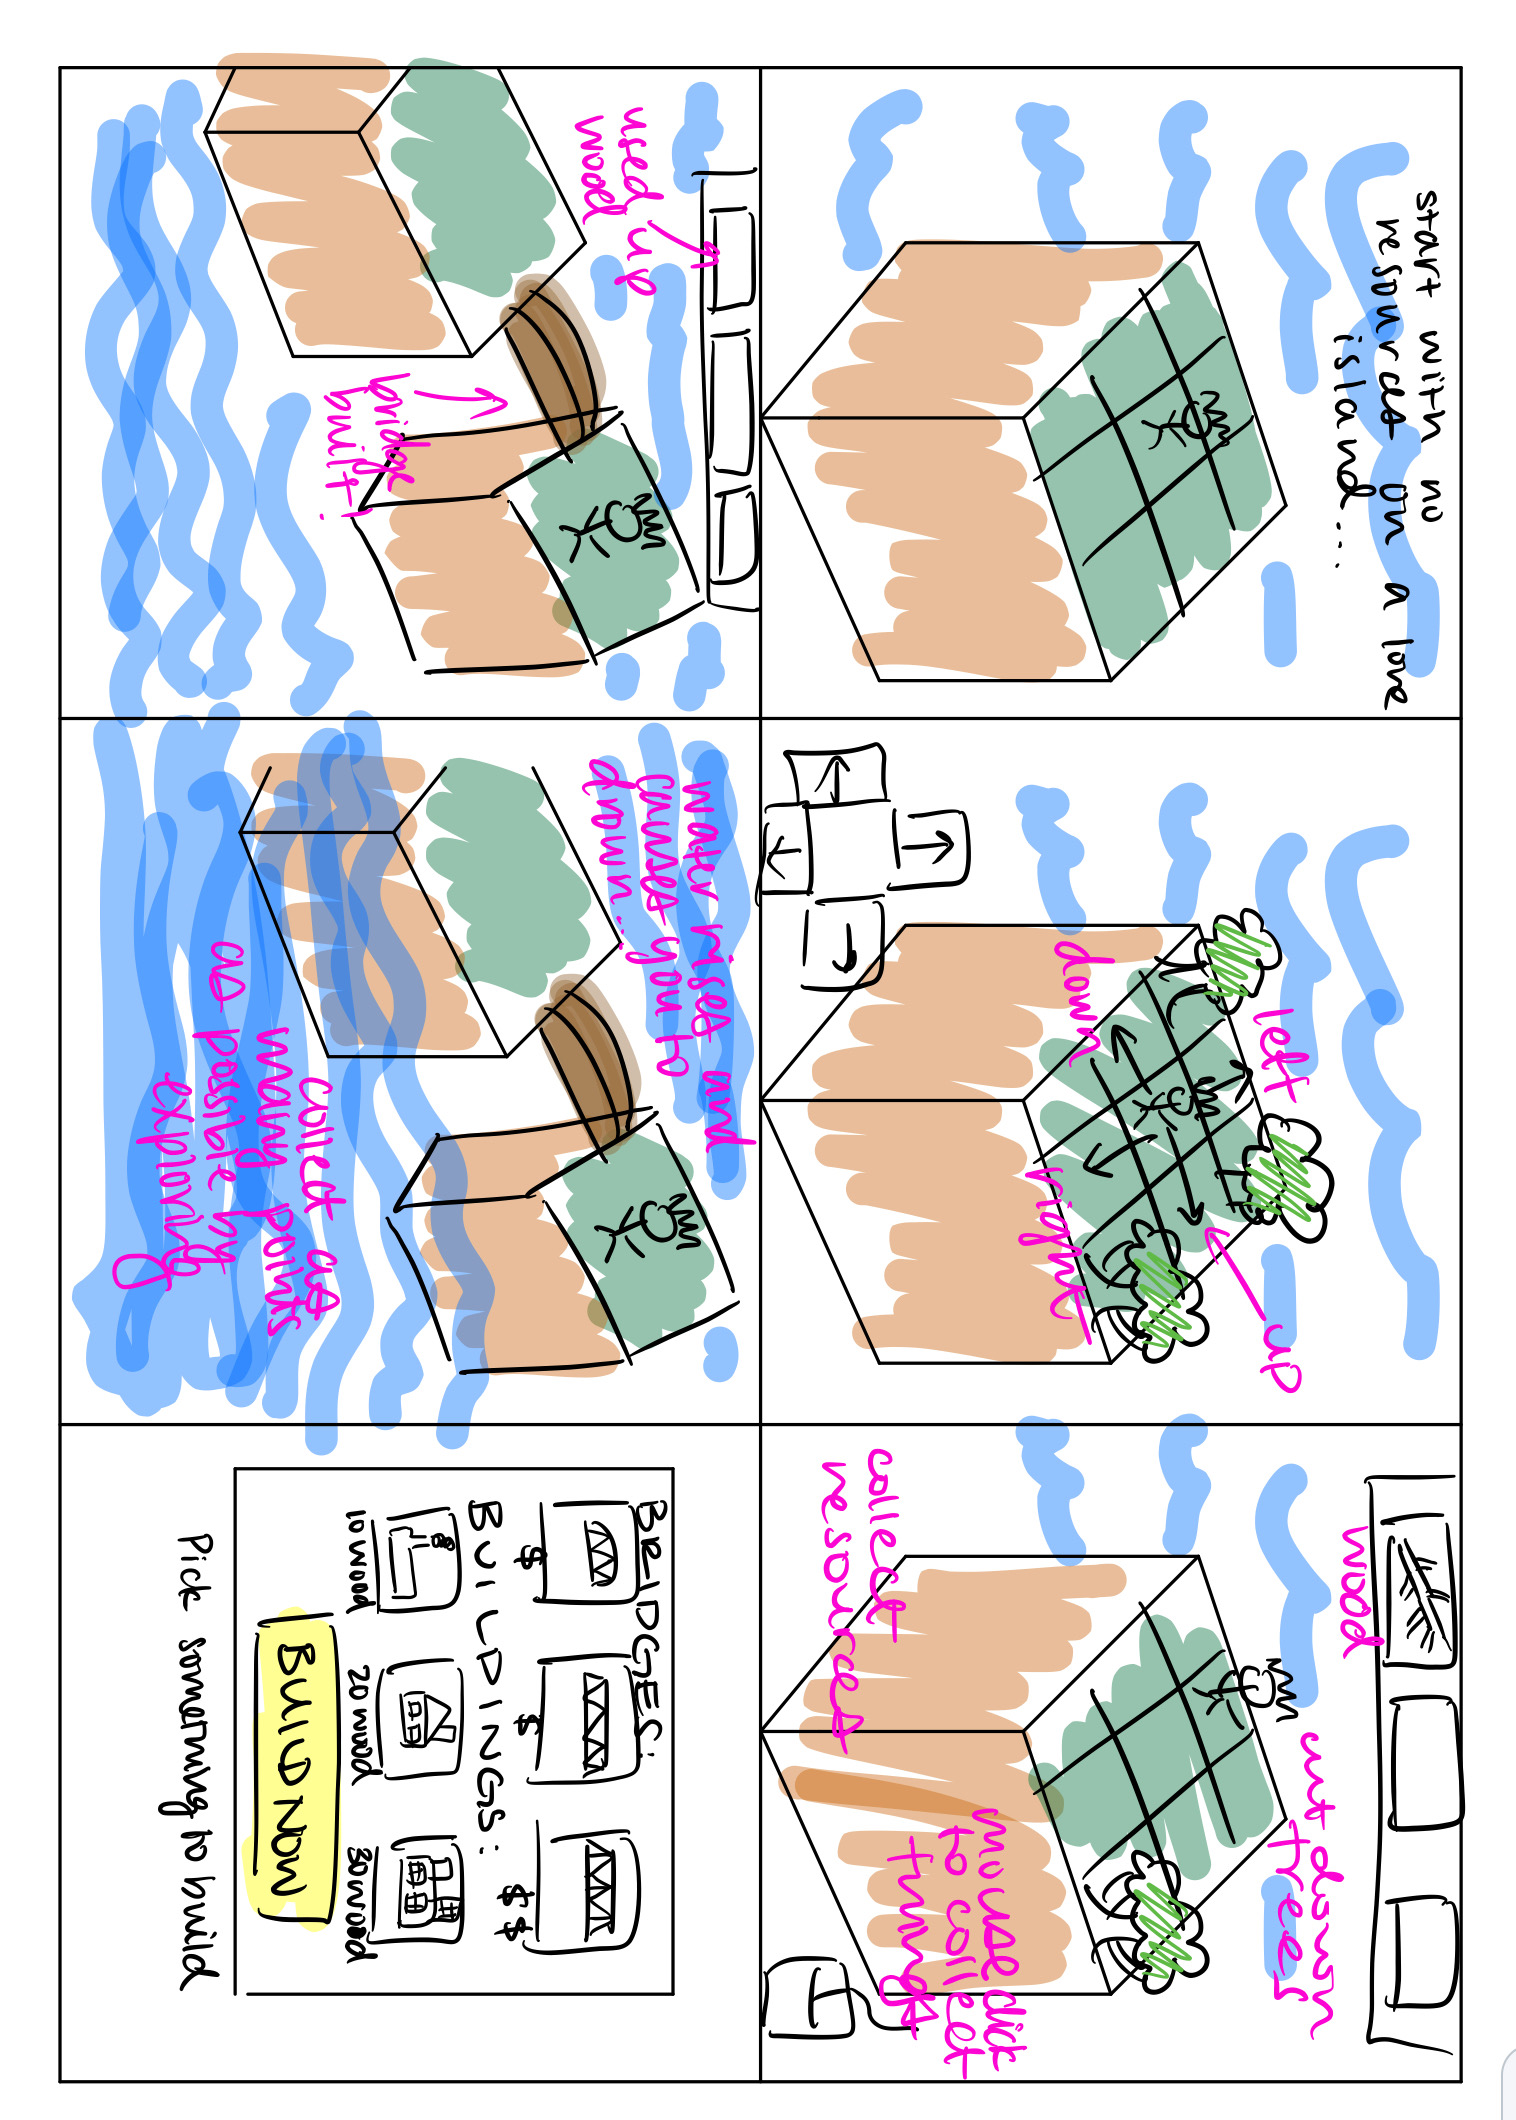 start with no
resources on a lone
island....
left
up
down
right
wood
cut down
trees
mouse click
to collect
things
collect
resources
used up
wood
bridge
built!
water rises and
causes you to
drown...
collect as
many points
as possible by
exploring
BRIDGES:
$ $ $$
BUILDINGS:
10 wood 20 wood 30 wood
BUILD NOW
Pick something to build